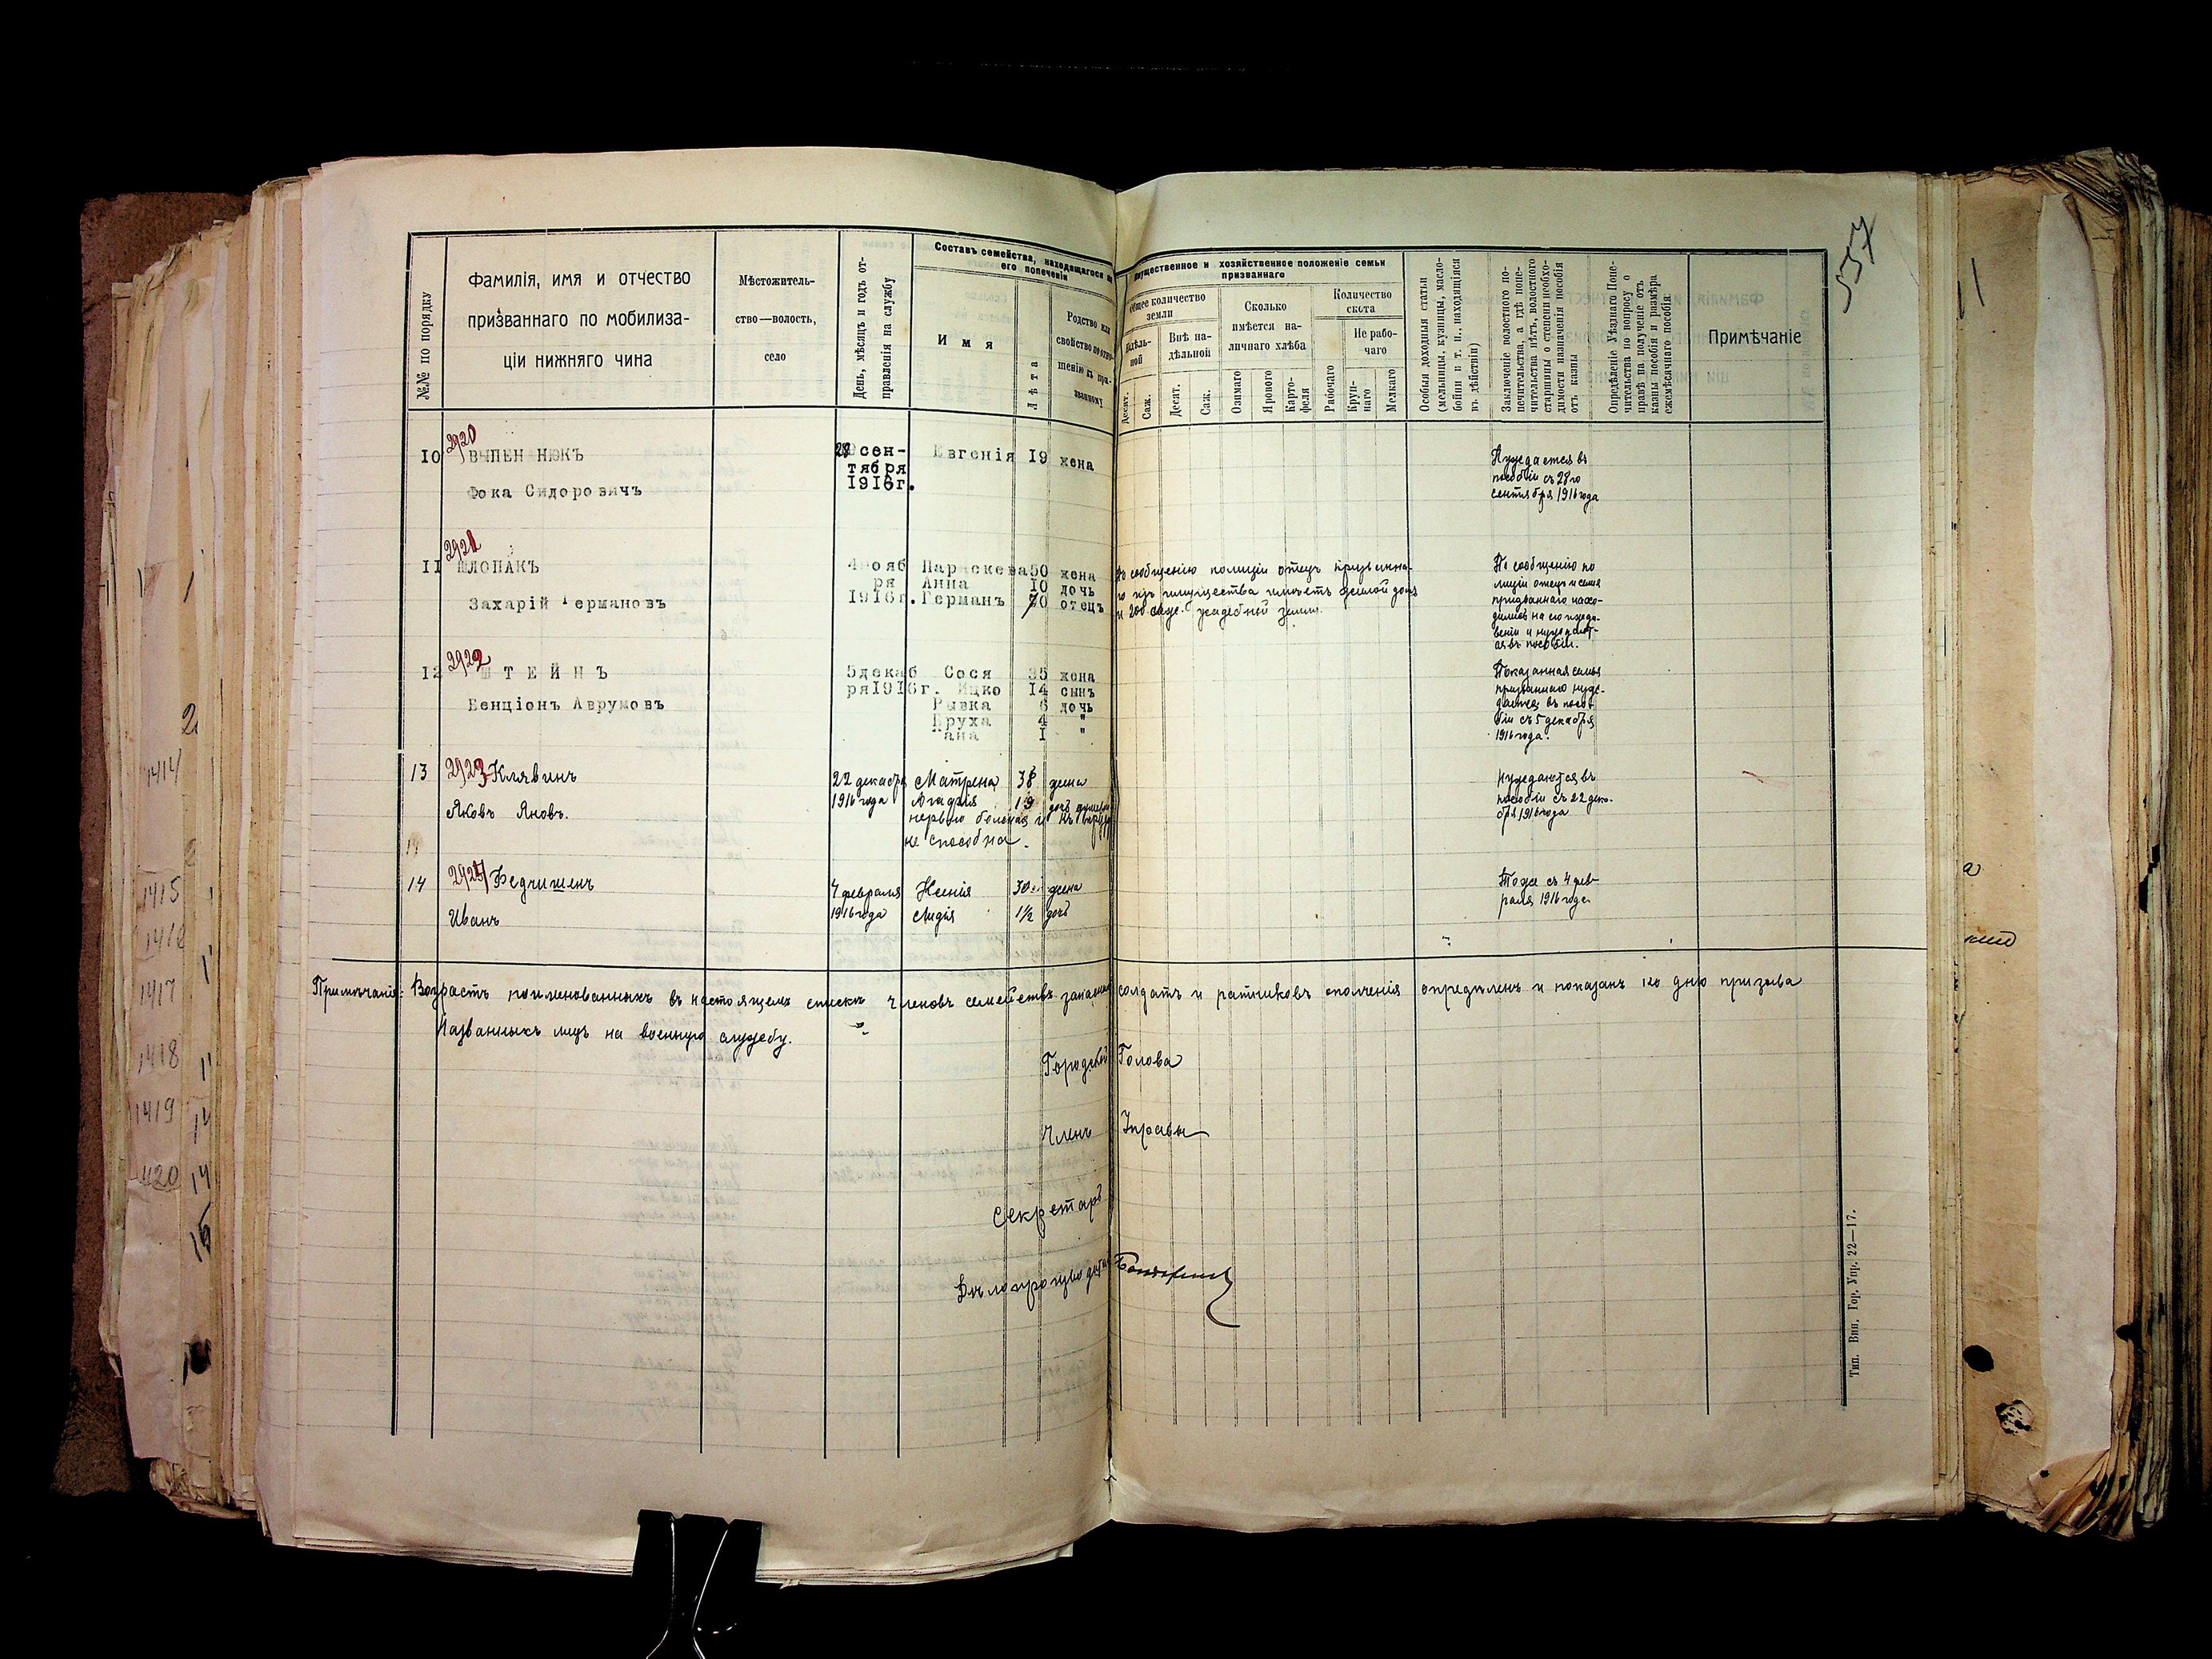 557
№№ по порядку
Фамилія, имя и отчество
призваннаго по мобилиза-
ціи нижняго чина
Мѣстожитель-
ство—волость,
село
День, мѣсяцъ и годъ от-
правленія на службу
Составъ семейства, находящагося на
его попеченіи
Имя
Лѣта
Родство или
свойство по отно-
шенію къ при-
званному
Имущественное и хозяйственное положеніе семьи
призваннаго
Общее количество
земли
Надѣль-
ной
Внѣ на-
дѣльной
Десят.
Саж.
Десят.
Саж.
Сколько
имѣется на-
личнаго хлѣба
Озимаго
Яроваго
Карто-
феля
Количество
скота
Рабочаго
Не рабо-
чаго
Круп-
наго
Мелкаго
Особыя доходныя статьи
(мельницы, кузницы, масло-
бойни и т. п., находящіяся
въ дѣйствіи)
Заключеніе волостного по-
печительства, а гдѣ попе-
чительства нѣтъ, волостного
старшины о степени необхо-
димости назначенія пособія
отъ казны
Опредѣленіе Уѣзднаго Попе-
чительства по вопросу о
правѣ на полученіе отъ
казны пособія и размѣра
ежемѣсячнаго пособія
Примѣчаніе
2920
10 ВЫПЕННЮКЪ
Фока Сидоровичъ
28 сен-
тября
1916г.
Евгенія 19 жена
Нуждается въ
пособіи съ 28го
сентября 1916 года
2921
11 ШЛОПАКЪ
Захарій Германовъ
4нояб
ря
1916г.
Параскева 50 жена
Анна 10 дочь
Германъ 70 отецъ
По сообщенію полиціи отецъ призванна-
го изъ имущества имѣетъ жилой домъ
и 200 саж. усадебной земли.
По сообщенію по
лиціи отецъ и семья
призваннаго нахо-
дились на его иждe-
веніи и нуждают-
ся въ пособіи.
2922
12 ШТЕЙНЪ
Бенціонъ Аврумовъ
5декаб
ря1916г.
Сося 35 жена
Ицко 14 сынъ
Рывка 6 дочь
Бруха 4 "
ана 1 "
Показанная семья
призваннаго нуж-
дается въ посо-
біи съ 5 декабря
1916 года.
13 2923 Клявинъ
Яковъ Яновъ.
22 декабря
1916 года
Матрена 38 жена
19 дочь
нервно больная и къ труду
не способна.
Нуждаются въ
пособіи съ 22 дека-
бря 1916 года
14 2924 Федчишенъ
Иванъ
4 февраля
1916 года
Ксенія 30 жена
Лидія 1½ дочь
Тоже съ 4 фев-
раля 1916 года
Примѣчаніе: Возрастъ поименованныхъ въ настоящемъ спискѣ членовъ семействъ запасныхъ солдатъ и ратниковъ ополченія опредѣленъ и показанъ ко дню призыва
названныхъ лицъ на военную службу.
Городской Голова
Членъ Управы
Секретарь
Дѣлопроизводитель
Тип. Вин. Гор. Упр. 22—17.
1414
1415
1416
1417
1418
1419
1420